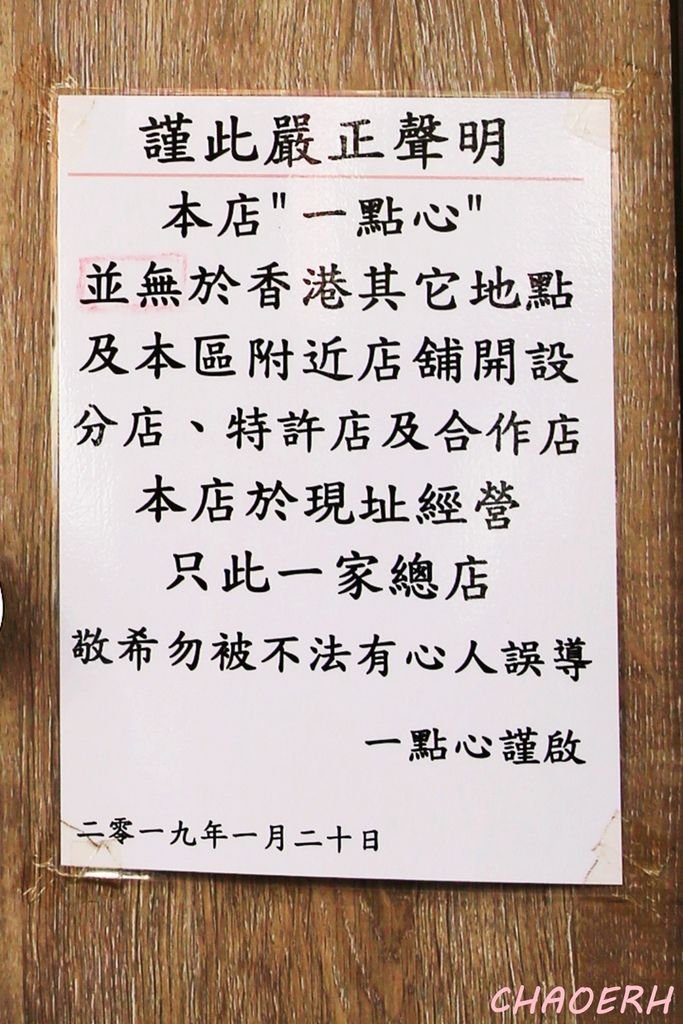 謹此嚴正聲明
本店"一點心"
並無於香港其它地點
及本區附近店舖開設
分店、特許店及合作店
本店於現址經營
只此一家總店
敬希勿被不法有心人誤導
一點心謹啟
二零一九年一月二十日
CHAOERH